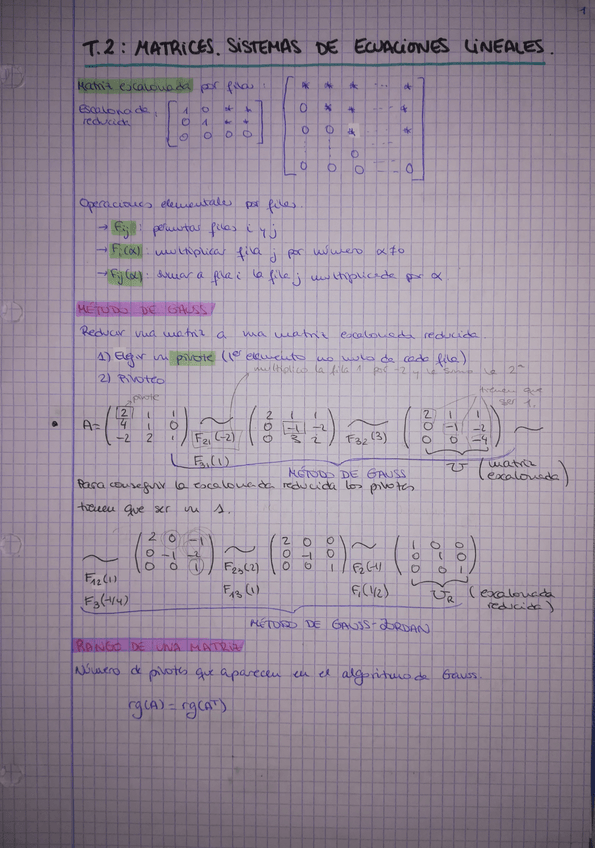 1
T.2: MATRICES. SISTEMAS DE ECUACIONES LINEALES.
Matriz escalonada por filas:
* * * ... *
0 * * ... *
0 0 * ... *
: : 0
0 0 0 ... 0
Escalonada reducida
1 0 * *
0 1 * *
0 0 0 0
Operaciones elementales por filas.
→ Fij: permutar filas i y j
→ Fi(α): multiplicar fila j por número α≠0
→ Fij(α): sumar a fila i la fila j multiplicada por α.
MÉTODO DE GAUSS
Reducir una matriz a una matriz escalonada reducida.
1) Elegir un pivote (1er elemento no nulo de cada fila)
multiplico la fila 1 por -2 y le sumo la 2ª
2) Pivoteo
pivote
tienen que ser 1.
A= ( 2 1 1 ) ~ ( 2 1 1 ) ~ ( 2 1 1 ) ~
( 4 1 0 ) F21(-2) ( 0 -1 -2 ) F32(3) ( 0 -1 -2 )
( -2 2 1 ) F31(1) ( 0 3 2 ) ( 0 0 -4 )
MÉTODO DE GAUSS
U (matriz escalonada)
Para conseguir la escalonada reducida los pivotes
tienen que ser un 1.
~ ( 2 0 -1 ) ~ ( 2 0 0 ) ~ ( 1 0 0 )
F12(1) ( 0 -1 -2 ) F23(2) ( 0 -1 0 ) F2(-1) ( 0 1 0 )
F3(-1/4) ( 0 0 1 ) F13(1) ( 0 0 1 ) F1(1/2) ( 0 0 1 )
UR (escalonada reducida)
MÉTODO DE GAUSS-JORDAN
RANGO DE UNA MATRIZ
Número de pivotes que aparecen en el algoritmo de Gauss.
rg(A) = rg(Aᵀ)